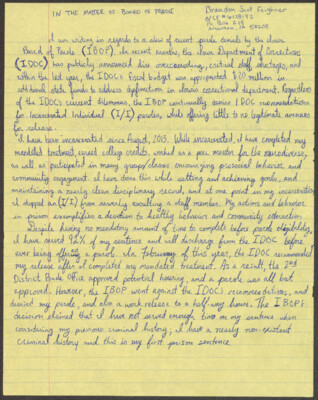 IN THE MATTER OF BOARD OF PAROLE
Brandon Scot Feighner
I am writing in regards to a slew of recent parole denials by the Iowa
Board of Parole (IBOP). In recent months, the Iowa Department of Corrections
(IDOC) has publicly announced its overcrowding, critical staff shortages, and
within the last year, the IDOC's fiscal budget was appropriated $20 million in
additional state funds to address dysfunction in Iowa's correctional department. Regardless
of the IDOC's current dilemmas, the IBOP continually denies IDOC recommendations
for Incarcerated Individual (I/I) paroles, while offering little to no legitimate answers
for release.
I have been incarcerated since August, 2013. While incarcerated, I have completed my
mandated treatment, earned college credits, worked as a peer mentor for the
as well as participated in many groups/classes encouraging prosocial behavior, and
community engagement. I have done this while setting and achieving goals, and
maintaining a nearly clean disciplinary record, and at one point in my incarceration
I stopped an (I/I) from severely assaulting a staff member. My actions and behavior
in prison exemplifies a devotion to healthy behavior and community interaction.
Despite having no mandatory amount of time to complete before parole eligibility,
I have served 92% of my sentence and will discharge from the IDOC before
ever being offered a parole. In February of this year, the IDOC recommended
my release after I completed my mandated treatment. As a result, the 2nd
District Parole Office approved potential housing, and a parole was all but
approved. However, the IBOP went against the IDOC's recommendations, and
denied my parole, and also a work release to a half way house. The IBOP's
decision claimed that I have not served enough time on my sentence when
considering my previous criminal history; I have a nearly non-existent
criminal history and this is my first prison sentence.